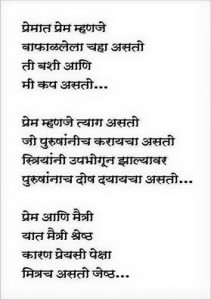 प्रेमात प्रेम म्हणजे
वाफाळलेला चहा असतो
ती बशी आणि
मी कप असतो...
प्रेम म्हणजे त्याग असतो
जो पुरुषांनीच करायचा असतो
स्त्रियांनी उपभोगून झाल्यावर
पुरुषांनाच दोष दयायचा असतो...
प्रेम आणि मैत्री
यात मैत्री श्रेष्ठ
कारण प्रेयसी पेक्षा
मित्रच असतो जेष्ठ...